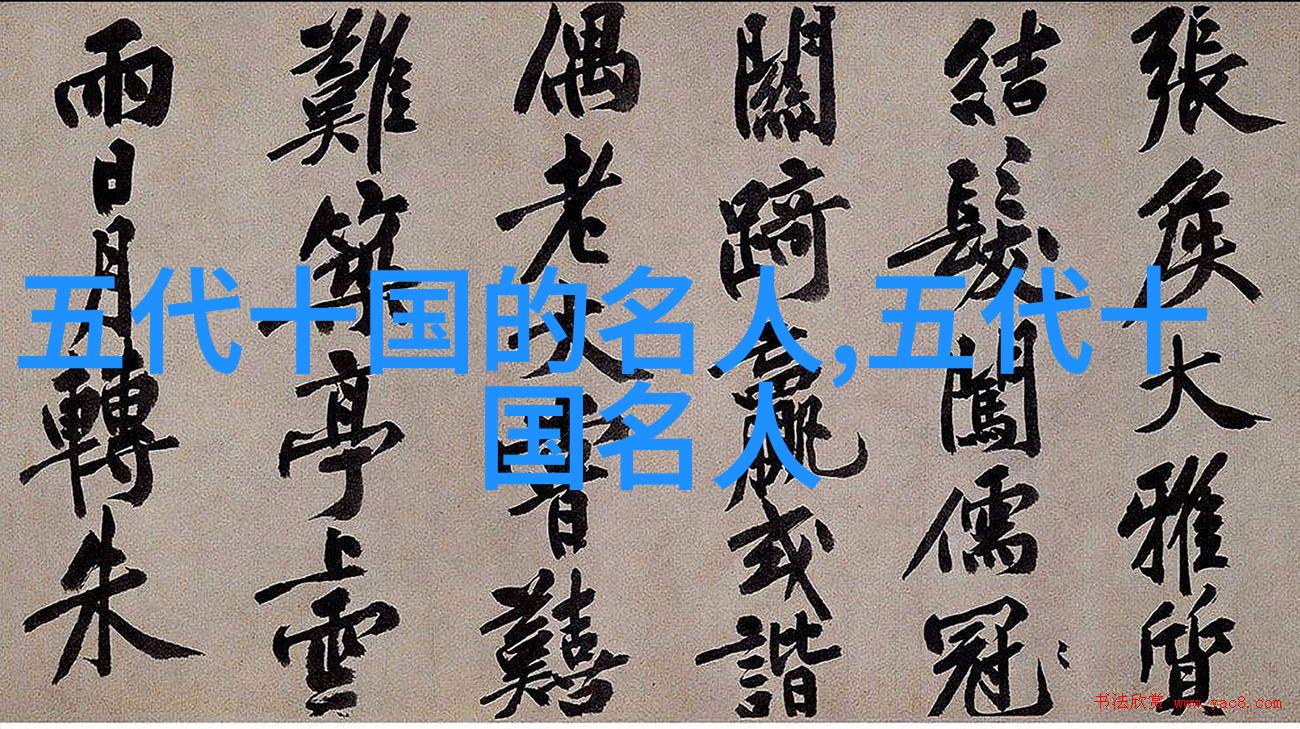 張矦大雅質
結髮闖儒冠
關踦或諧
偶老大囏
難築亭上雲
雨日月轉朱
五代十国的名人,五代十
国名人
书法欣赏 www.yac8.com